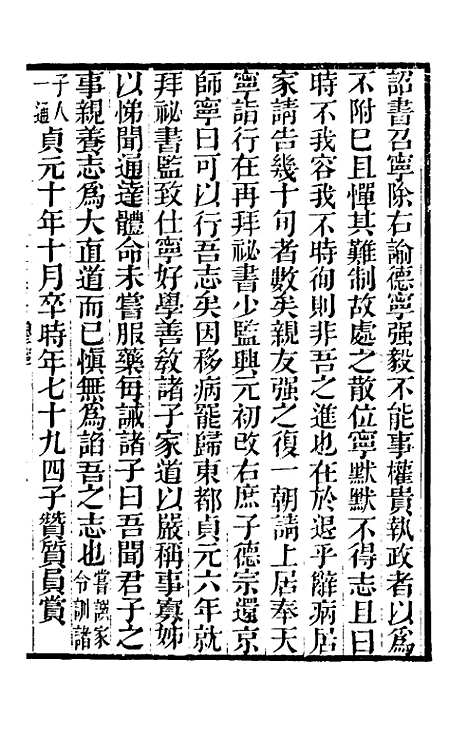 詔書召寧除右諭德寧强毅不能事權貴執政者以爲
不附巳且憚其難制故處之散位寧默默不得志且曰
時不我容我不時徇則非吾之進也在於退乎辭病居
家請告幾十旬者數矣親友强之復一朝請上居奉天
寧詣行在再拜祕書少監興元初改右庶子德宗還京
師寧曰可以行吾志矣因移病罷歸東都貞元六年就
拜祕書監致仕寧好學善敎諸子家道以嚴稱事寡姊
以悌聞通達體命未嘗服藥每誡諸子曰吾聞君子之
事親養志爲大直道而已愼無爲諂吾之志也嘗譔家令訓諸
子人一通貞元十年十月卒時年七十九四子贊質員賞